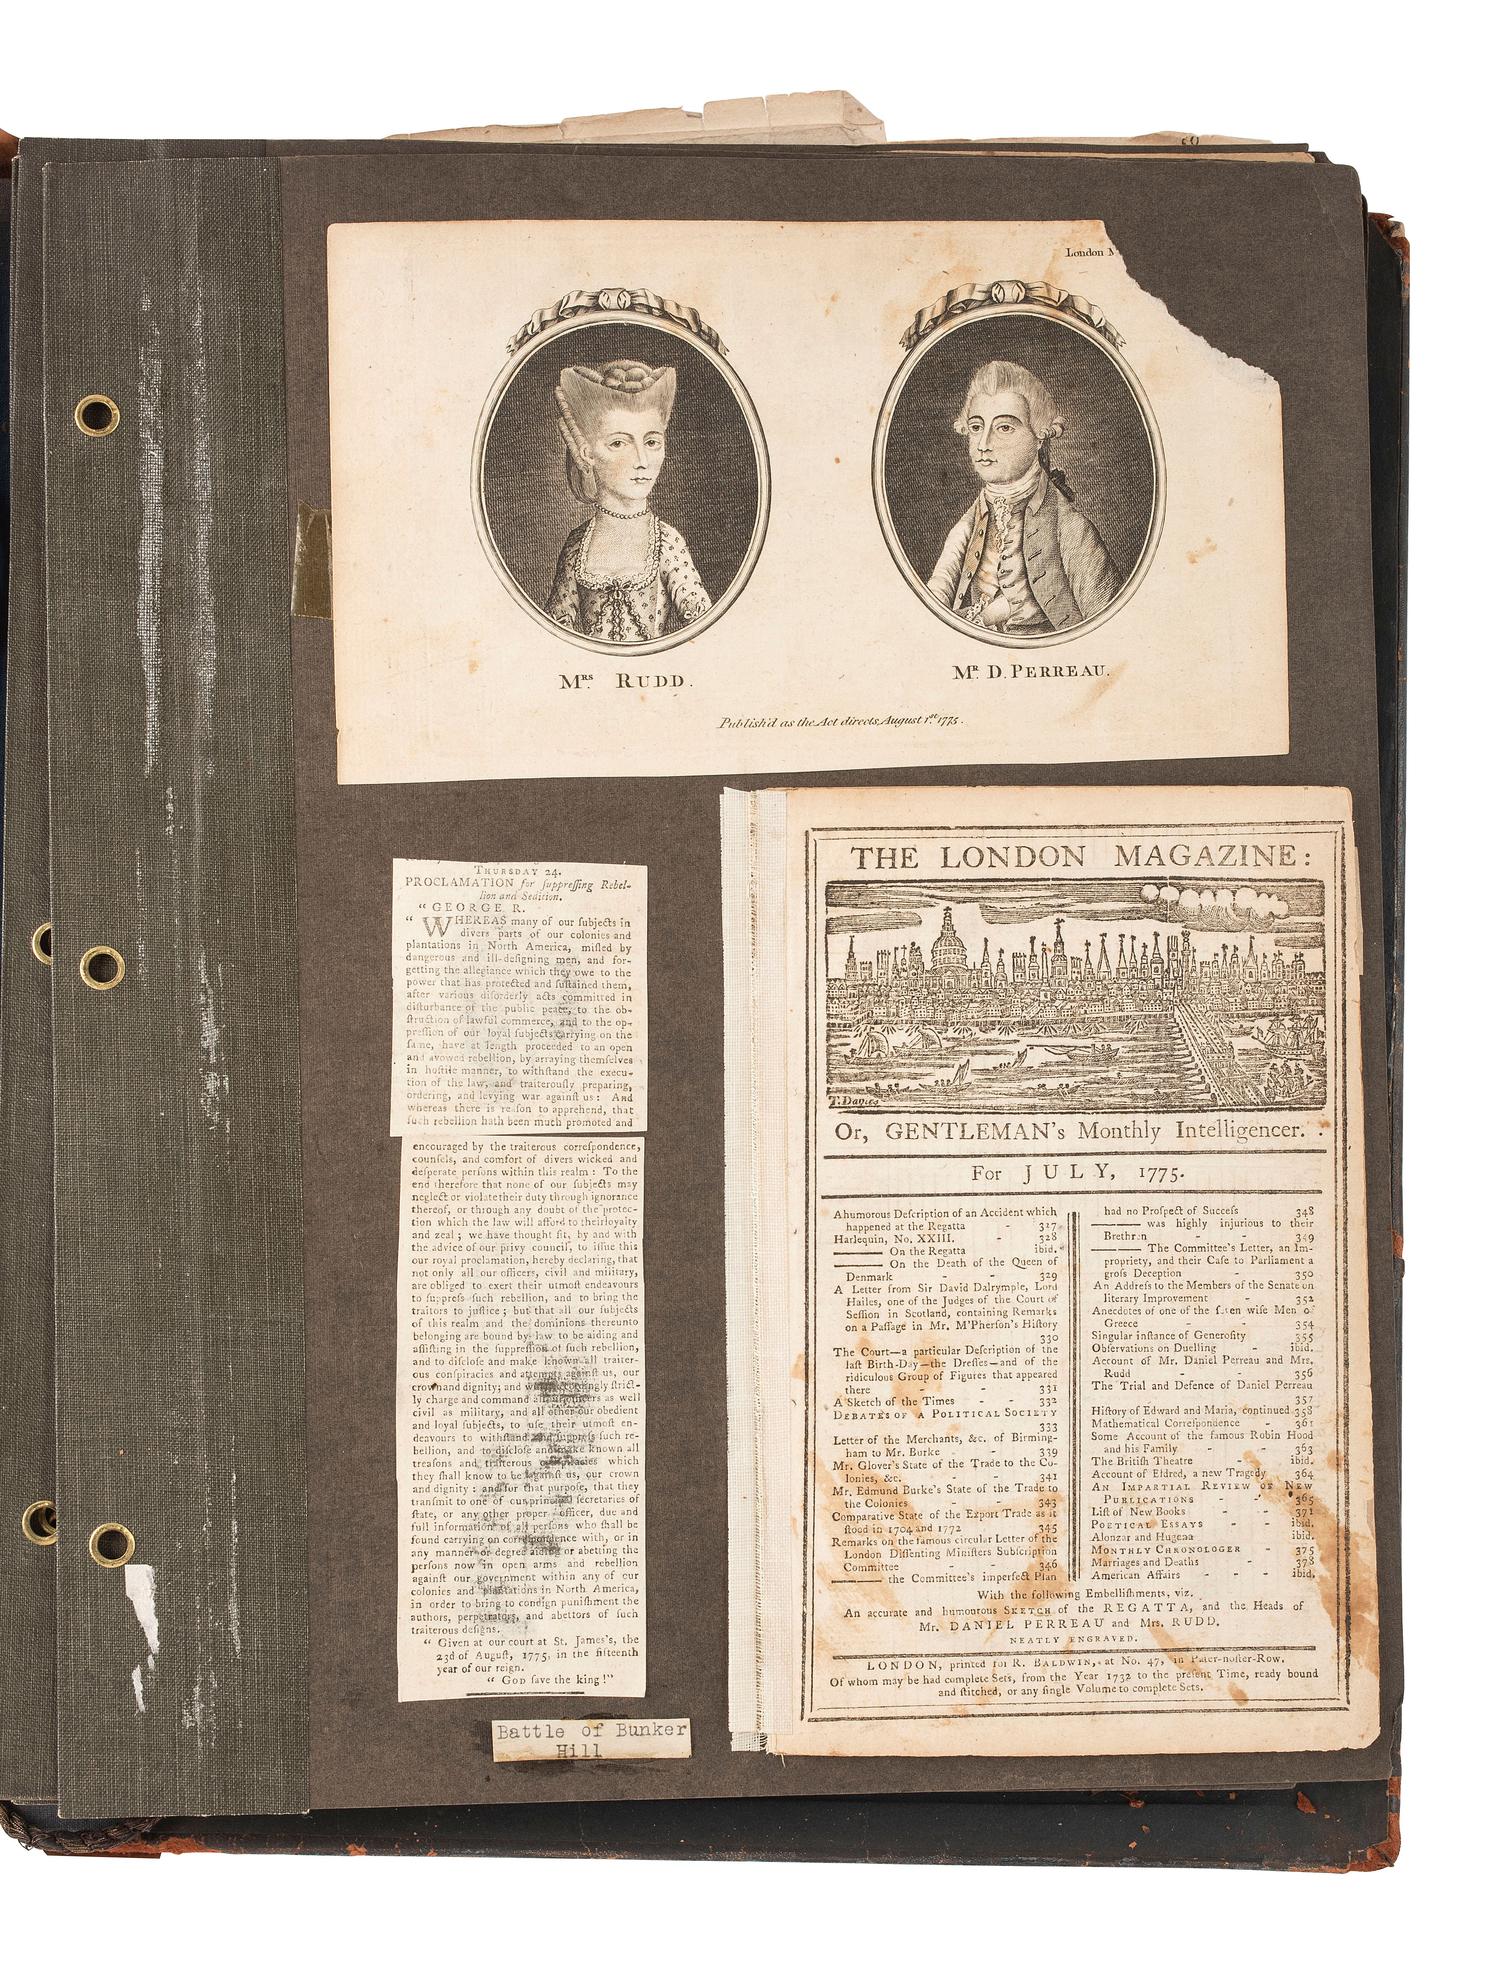 London M
Mrs RUDD.
Mr. D. PERREAU.
Publish'd as the Act directs, August 1st 1775.
THURSDAY 24.
PROCLAMATION for ſuppreſſing Rebel-
lion and Sedition.
" GEORGE R.
" WHEREAS many of our ſubjects in
divers parts of our colonies and
plantations in North America, miſled by
dangerous and ill-deſigning men, and for-
getting the allegiance which they owe to the
power that has protected and ſuſtained them,
after various diſorderly acts committed in
diſturbance of the public peace, to the ob-
ſtruction of lawful commerce, and to the op-
preſſion of our loyal ſubjects carrying on the
ſame, have at length proceeded to an open
and avowed rebellion, by arraying themſelves
in hoſtile manner, to withſtand the execu-
tion of the law, and traiterouſly preparing,
ordering, and levying war againſt us: And
whereas there is reaſon to apprehend, that
ſuch rebellion hath been much promoted and
encouraged by the traiterous correſpondence,
counſels, and comfort of divers wicked and
deſperate perſons within this realm: To the
end therefore that none of our ſubjects may
neglect or violate their duty through ignorance
thereof, or through any doubt of the protec-
tion which the law will afford to their loyalty
and zeal; we have thought fit, by and with
the advice of our privy council, to iſſue this
our royal proclamation, hereby declaring, that
not only all our officers, civil and military,
are obliged to exert their utmoſt endeavours
to ſuppreſs ſuch rebellion, and to bring the
traitors to juſtice; but that all our ſubjects
of this realm and the dominions thereunto
belonging are bound by law to be aiding and
aſſiſting in the ſuppreſſion of ſuch rebellion,
and to diſcloſe and make known all traiter-
ous conſpiracies and attempts againſt us, our
crown and dignity; and we accordingly ſtrict-
ly charge and command all our officers as well
civil as military, and all other our obedient
and loyal ſubjects, to uſe their utmoſt en-
deavours to withſtand and ſuppreſs ſuch re-
bellion, and to diſcloſe and make known all
treaſons and traiterous conſpiracies which
they ſhall know to be againſt us, our crown
and dignity: and for that purpoſe, that they
tranſmit to one of our principal ſecretaries of
ſtate, or any other proper officer, due and
full information of all perſons who ſhall be
found carrying on correſpondence with, or in
any manner or degree aiding or abetting the
perſons now in open arms and rebellion
againſt our government within any of our
colonies and plantations in North America,
in order to bring to condign puniſhment the
authors, perpetrators, and abettors of ſuch
traiterous deſigns.
" Given at our court at St. James's, the
23d of Auguſt, 1775, in the fifteenth
year of our reign.
" GOD ſave the king!"
Battle of Bunker
Hill
THE LONDON MAGAZINE:
T. Davies
Or, GENTLEMAN's Monthly Intelligencer.
For JULY, 1775.
A humorous Deſcription of an Accident which
happened at the Regatta - 327
Harlequin, No. XXIII. - 328
—— On the Regatta ibid.
—— On the Death of the Queen of
Denmark - - 329
A Letter from Sir David Dalrymple, Lord
Hailes, one of the Judges of the Court of
Seſſion in Scotland, containing Remarks
on a Paſſage in Mr. M'Pherſon's Hiſtory
330
The Court—a particular Deſcription of the
laſt Birth-Day—the Dreſſes—and of the
ridiculous Group of Figures that appeared
there - - 331
A Sketch of the Times - 332
DEBATES OF A POLITICAL SOCIETY
333
Letter of the Merchants, &c. of Birming-
ham to Mr. Burke - - 339
Mr. Glover's State of the Trade to the Co-
lonies, &c. - - 341
Mr. Edmund Burke's State of the Trade to
the Colonies - - 343
Comparative State of the Export Trade as it
ſtood in 1704 and 1772 345
Remarks on the famous circular Letter of the
London Diſſenting Miniſters Subſcription
Committee - - 346
—— the Committee's imperfect Plan
had no Proſpect of Succeſs 348
—— was highly injurious to their
Brethren - - 349
—— The Committee's Letter, an Im-
propriety, and their Caſe to Parliament a
groſs Deception - 350
An Addreſs to the Members of the Senate on
literary Improvement - 352
Anecdotes of one of the ſeven wiſe Men of
Greece - - 354
Singular inſtance of Generoſity 355
Obſervations on Duelling - ibid.
Account of Mr. Daniel Perreau and Mrs.
Rudd - - 356
The Trial and Defence of Daniel Perreau
357
Hiſtory of Edward and Maria, continued 358
Mathematical Correſpondence - 361
Some Account of the famous Robin Hood
and his Family - - 363
The Britiſh Theatre - ibid.
Account of Eldred, a new Tragedy 364
AN IMPARTIAL REVIEW OF NEW
PUBLICATIONS - - 365
Liſt of New Books - 371
POETICAL ESSAYS - - ibid.
Alonzar and Hugeaa - ibid.
MONTHLY CHRONOLOGER - 375
Marriages and Deaths - 378
American Affairs - - - ibid.
With the following Embelliſhments, viz.
An accurate and humourous SKETCH of the REGATTA, and the Heads of
Mr. DANIEL PERREAU and Mrs. RUDD.
NEATLY ENGRAVED.
LONDON, printed for R. BALDWIN, at No. 47, in Pater-noſter-Row.
Of whom may be had complete Sets, from the Year 1732 to the preſent Time, ready bound
and ſtitched, or any ſingle Volume to complete Sets.